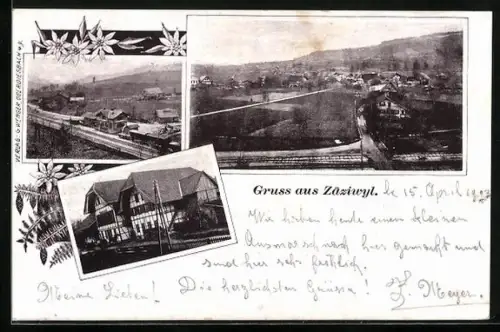 VERLAG: G. WENGER OBERDIESBACH
Gruss aus Zäziwyl. le 15. April
Wir haben heute einen kleinen
Ausmarsch nach hier gemacht und
sind hier sehr fröhlich.
Meine Lieben! Die herzlichsten Grüsse!
Meyer.